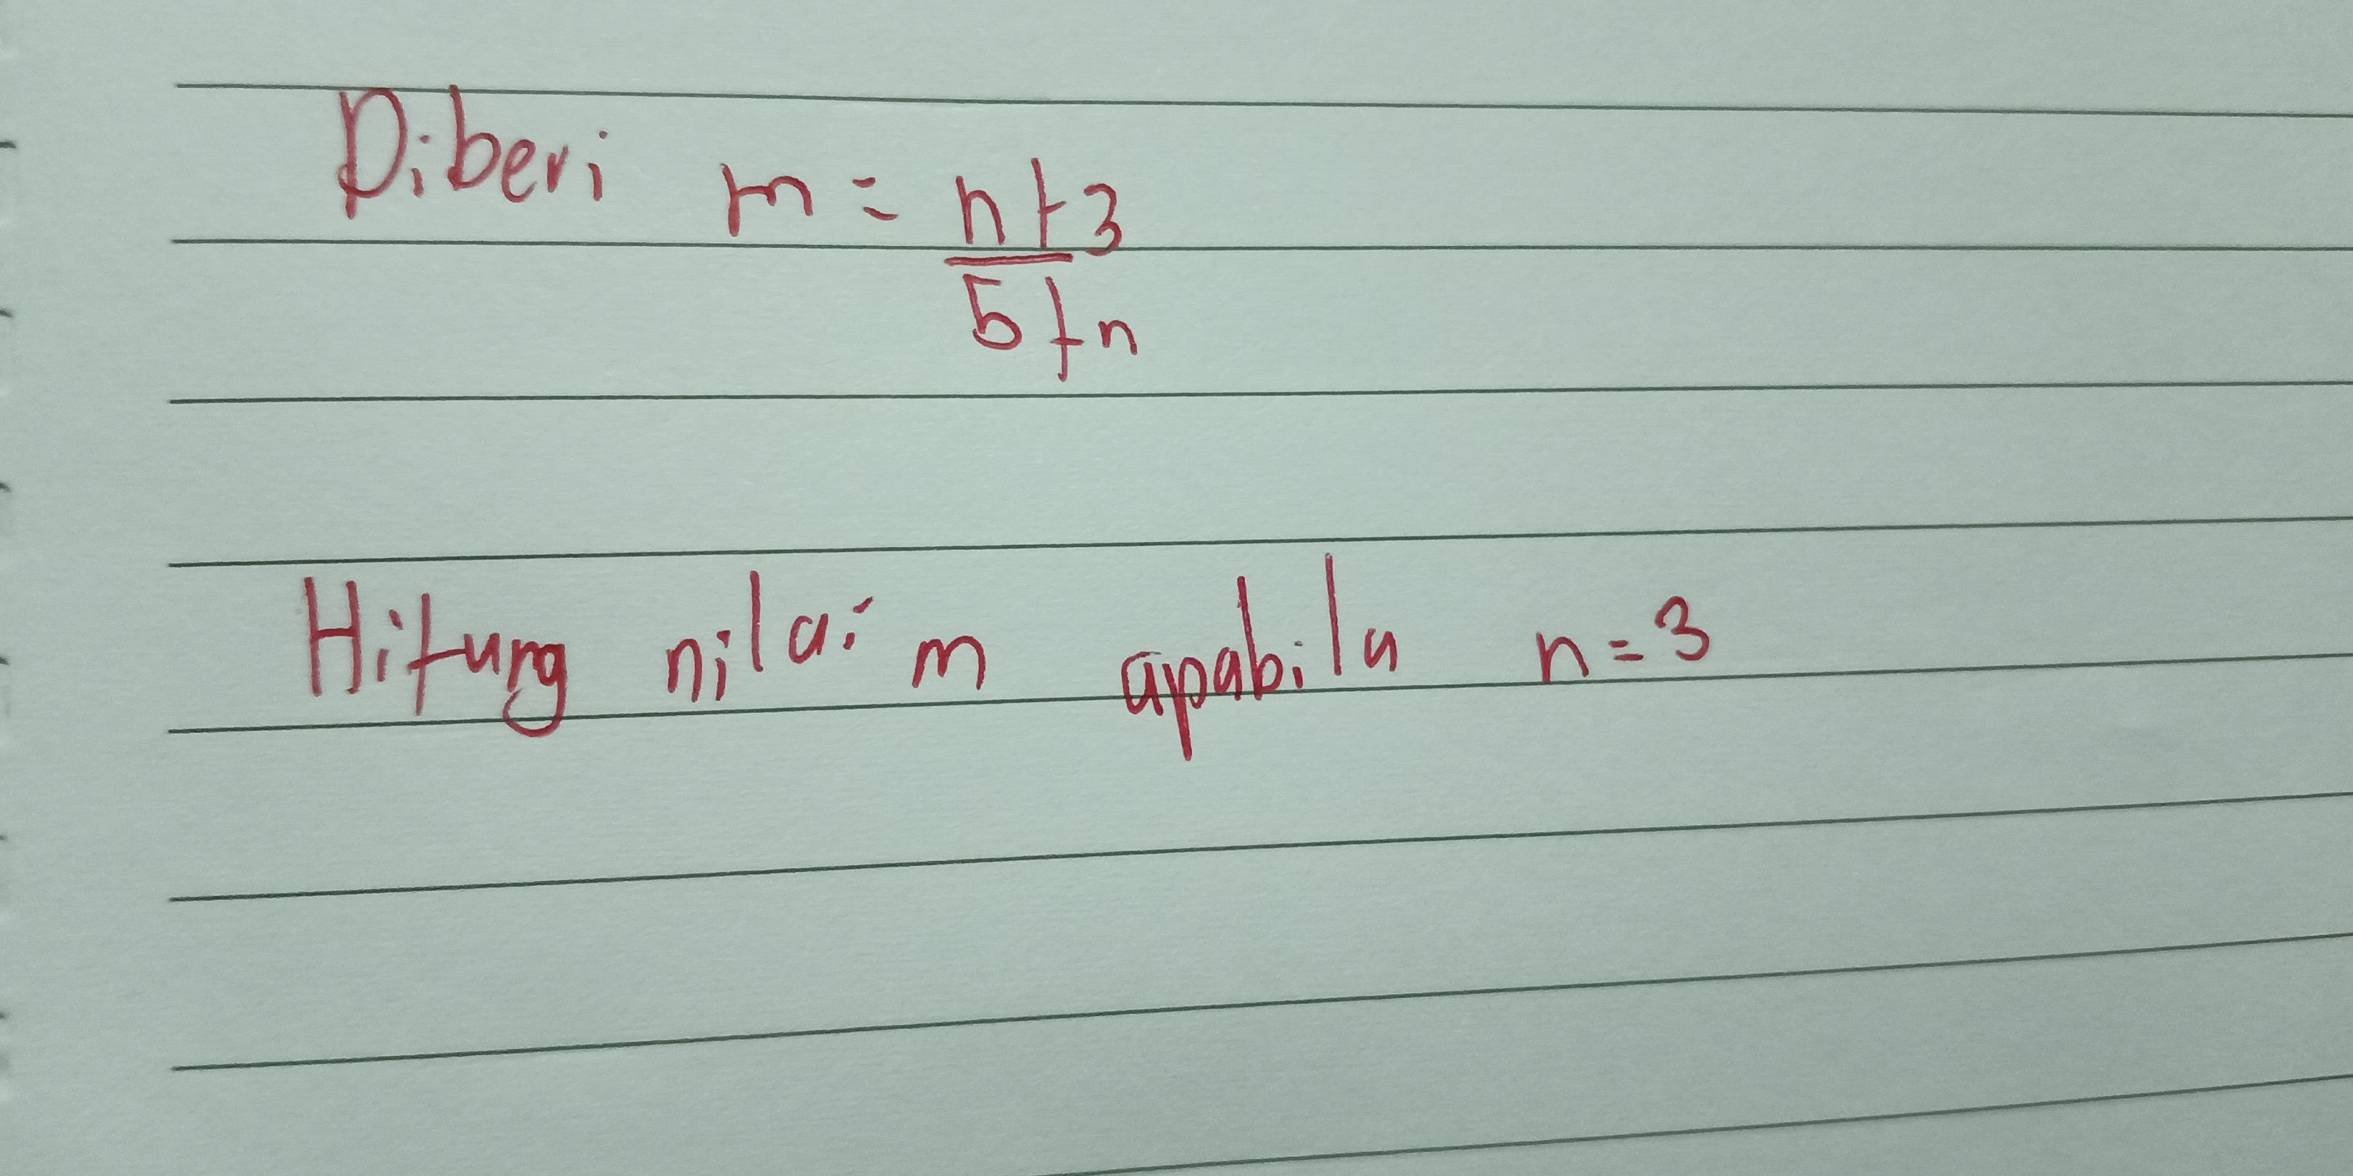 Diberi m = n+3
5+n
Hitung nilai m apabila n=3